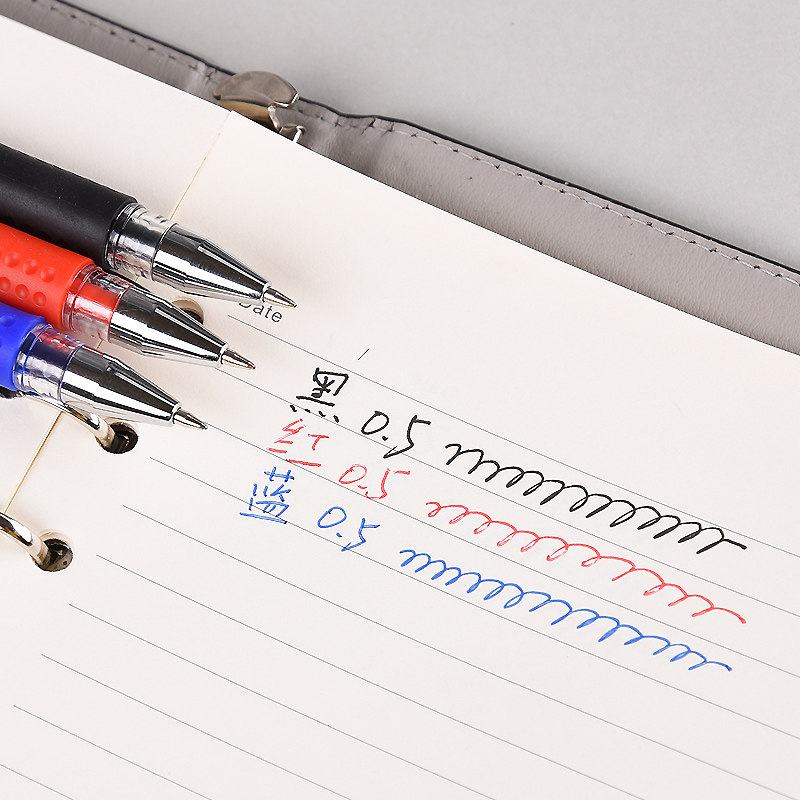 Date
黑 0.5
红 0.5
蓝 0.5